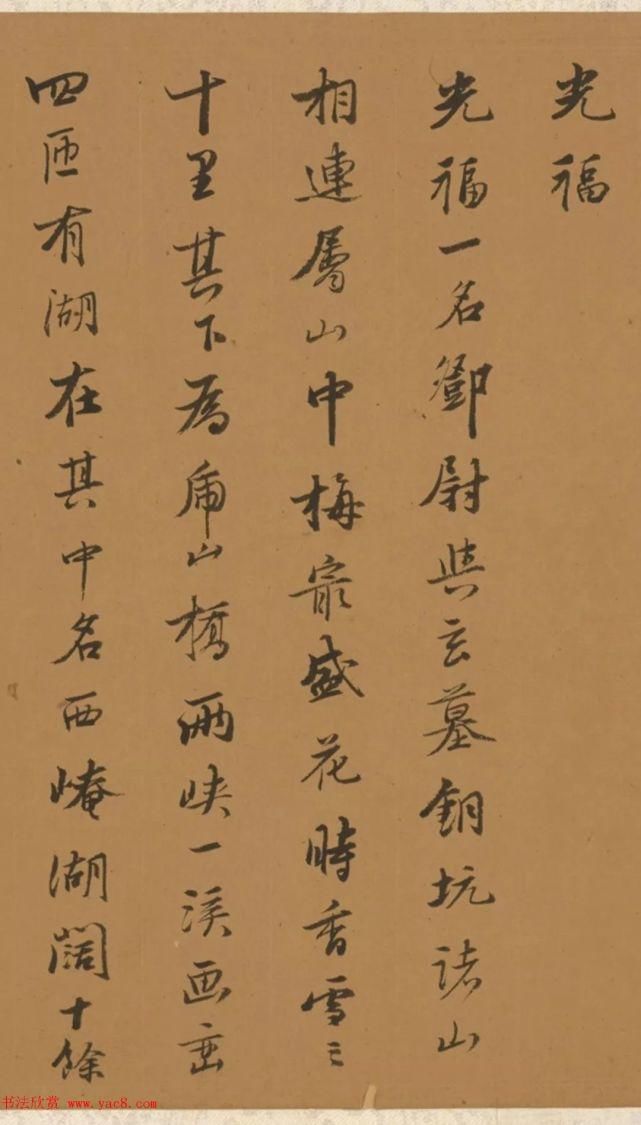 光福
光福一名鄧尉與玄墓銅坑諸山
相連層山中梅最盛花時香雪三
十里其下為虎山橋兩峽一溪画峦
四匝有湖在其中名西崦湖闊十餘
书法欣赏 www.yac8.com